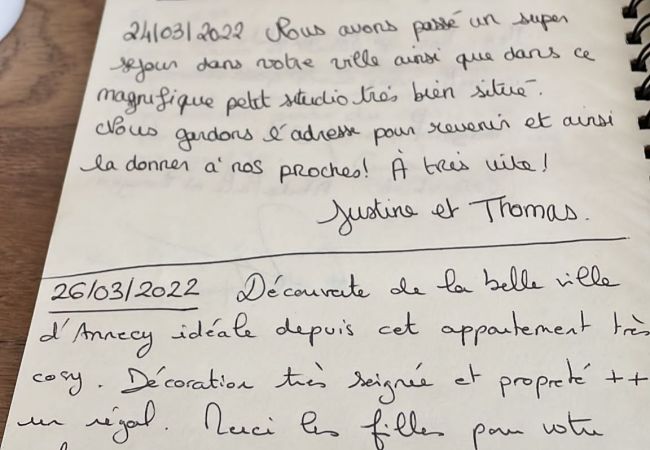 24/03/2022 Nous avons passé un super
séjour dans votre ville ainsi que dans ce
magnifique petit studio très bien situé.
Nous gardons l'adresse pour revenir et ainsi
la donner à nos proches! À très vite!
Justine et Thomas.
26/03/2022 Découverte de la belle ville
d'Annecy idéale depuis cet appartement très
cosy. Décoration très soignée et propreté ++
un régal. Merci les filles pour votre